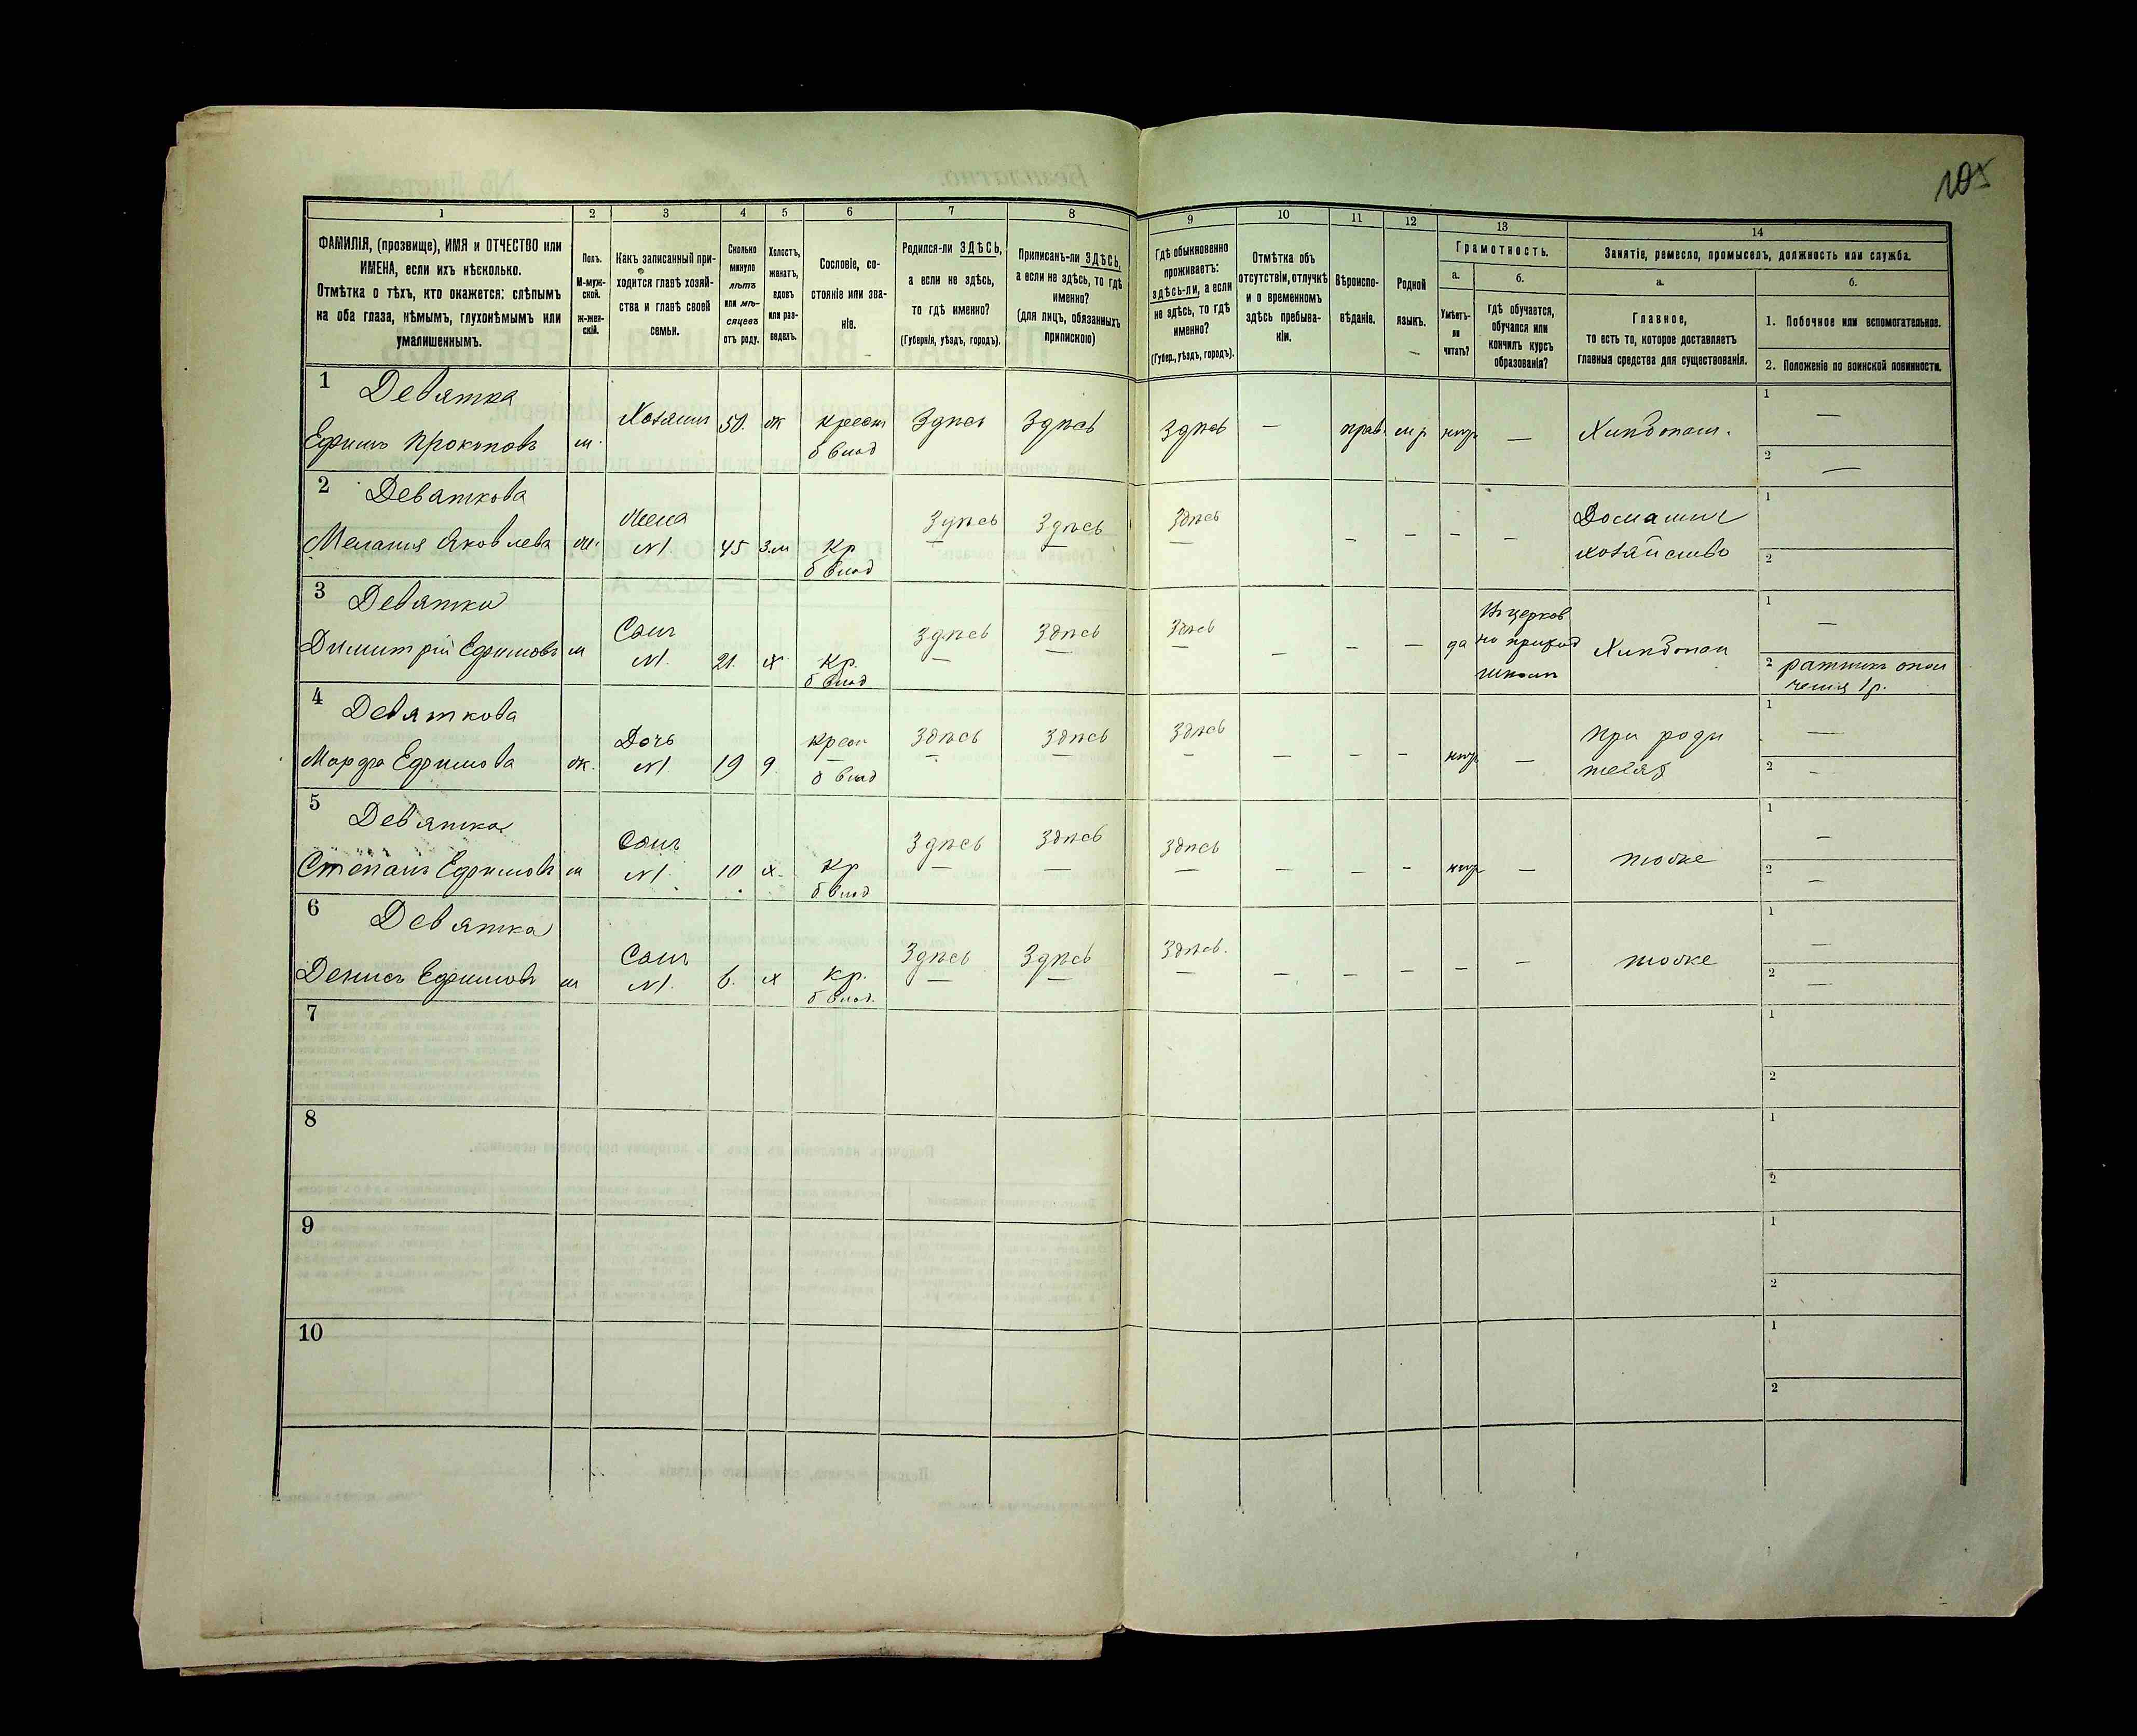 105
1 2 3 4 5 6 7 8 9 10 11 12 13 14
ФАМИЛІЯ, (прозвище), ИМЯ и ОТЧЕСТВО или
ИМЕНА, если ихъ нѣсколько.
Отмѣтка о тѣхъ, кто окажется: слѣпымъ
на оба глаза, нѣмымъ, глухонѣмымъ или
умалишеннымъ.
Полъ.
М-муж-
ской.
Ж-жен-
скій.
Какъ записанный при-
ходится главѣ хозяй-
ства и главѣ своей
семьи.
Сколько
минуло
лѣтъ
или мѣ-
сяцевъ
отъ роду.
Холостъ,
женатъ,
вдовъ
или раз-
веденъ.
Сословіе, со-
стояніе или зва-
ніе.
Родился-ли ЗДѢСЬ,
а если не здѣсь,
то гдѣ именно?
(Губернія, уѣздъ, городъ).
Приписанъ-ли ЗДѢСЬ,
а если не здѣсь, то гдѣ
именно?
(для лицъ, обязанныхъ
припискою)
Гдѣ обыкновенно
проживаетъ:
здѣсь-ли, а если
не здѣсь, то гдѣ
именно?
(Губер., уѣздъ, городъ).
Отмѣтка объ
отсутствіи, отлучкѣ
и о временномъ
здѣсь пребыва-
ніи.
Вѣроиспо-
вѣданіе.
Родной
языкъ.
Грамотность.
а.
Умѣетъ-
ли
читать?
б.
Гдѣ обучается,
обучался или
кончилъ курсъ
образованія?
Занятіе, ремесло, промыселъ, должность или служба.
а.
Главное,
то есть то, которое доставляетъ
главныя средства для существованія.
б.
1. Побочное или вспомогательное.
2. Положеніе по воинской повинности.
1 Девятка
Ефимъ Прокоповъ м. Хозяинъ 50. ж крест Здѣсь Здѣсь Здѣсь — прав. мр нгр — Хлибопаш. 1 —
б влад 2 —
2 Девяткова
Мелания Яковлева ж. Жена №1 45 з.м Кр Здѣсь Здѣсь Здѣсь — — — — Домашнее 1
б влад хозяйство 2
3 Девятка
Димитрій Ефимовъ м Сынъ №1. 21. х Кр. Здѣсь Здѣсь Здѣсь — — — да Въ церков Хлибопаш 1 —
б влад но приход 2 ратникъ опол
школѣ ченія 1р.
4 Девяткова
Марфа Ефимова ж. Дочь №1. 19 9 крест Здѣсь Здѣсь Здѣсь — — — нгр — При роди 1 —
б влад теляхъ 2 —
5 Девятка
Степанъ Ефимовъ м Сынъ №1. 10 х. Кр Здѣсь Здѣсь Здѣсь — — — нгр — тоже 1 —
б влад 2 —
6 Девятка
Денисъ Ефимовъ м Сынъ №1. 6. х Кр. Здѣсь Здѣсь Здѣсь. — — — — — тоже 1 —
б влад. 2 —
7 1
2
8 1
2
9 1
2
10 1
2